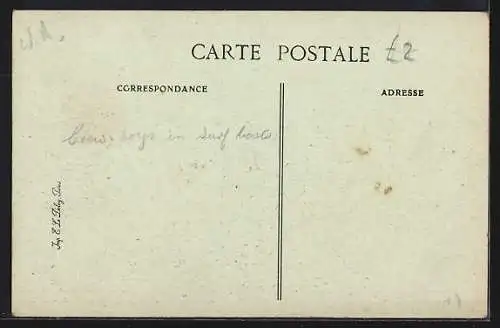 CARTE POSTALE £2
CORRESPONDANCE
ADRESSE
boys in surf boats
Imp. E. Le Deley, Paris